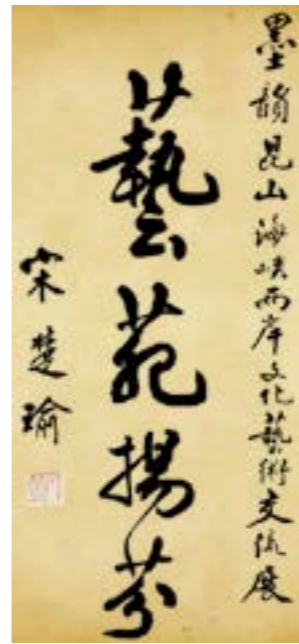 墨韻昆山海峽兩岸文化藝術交流展
藝苑揚芬
宋楚瑜